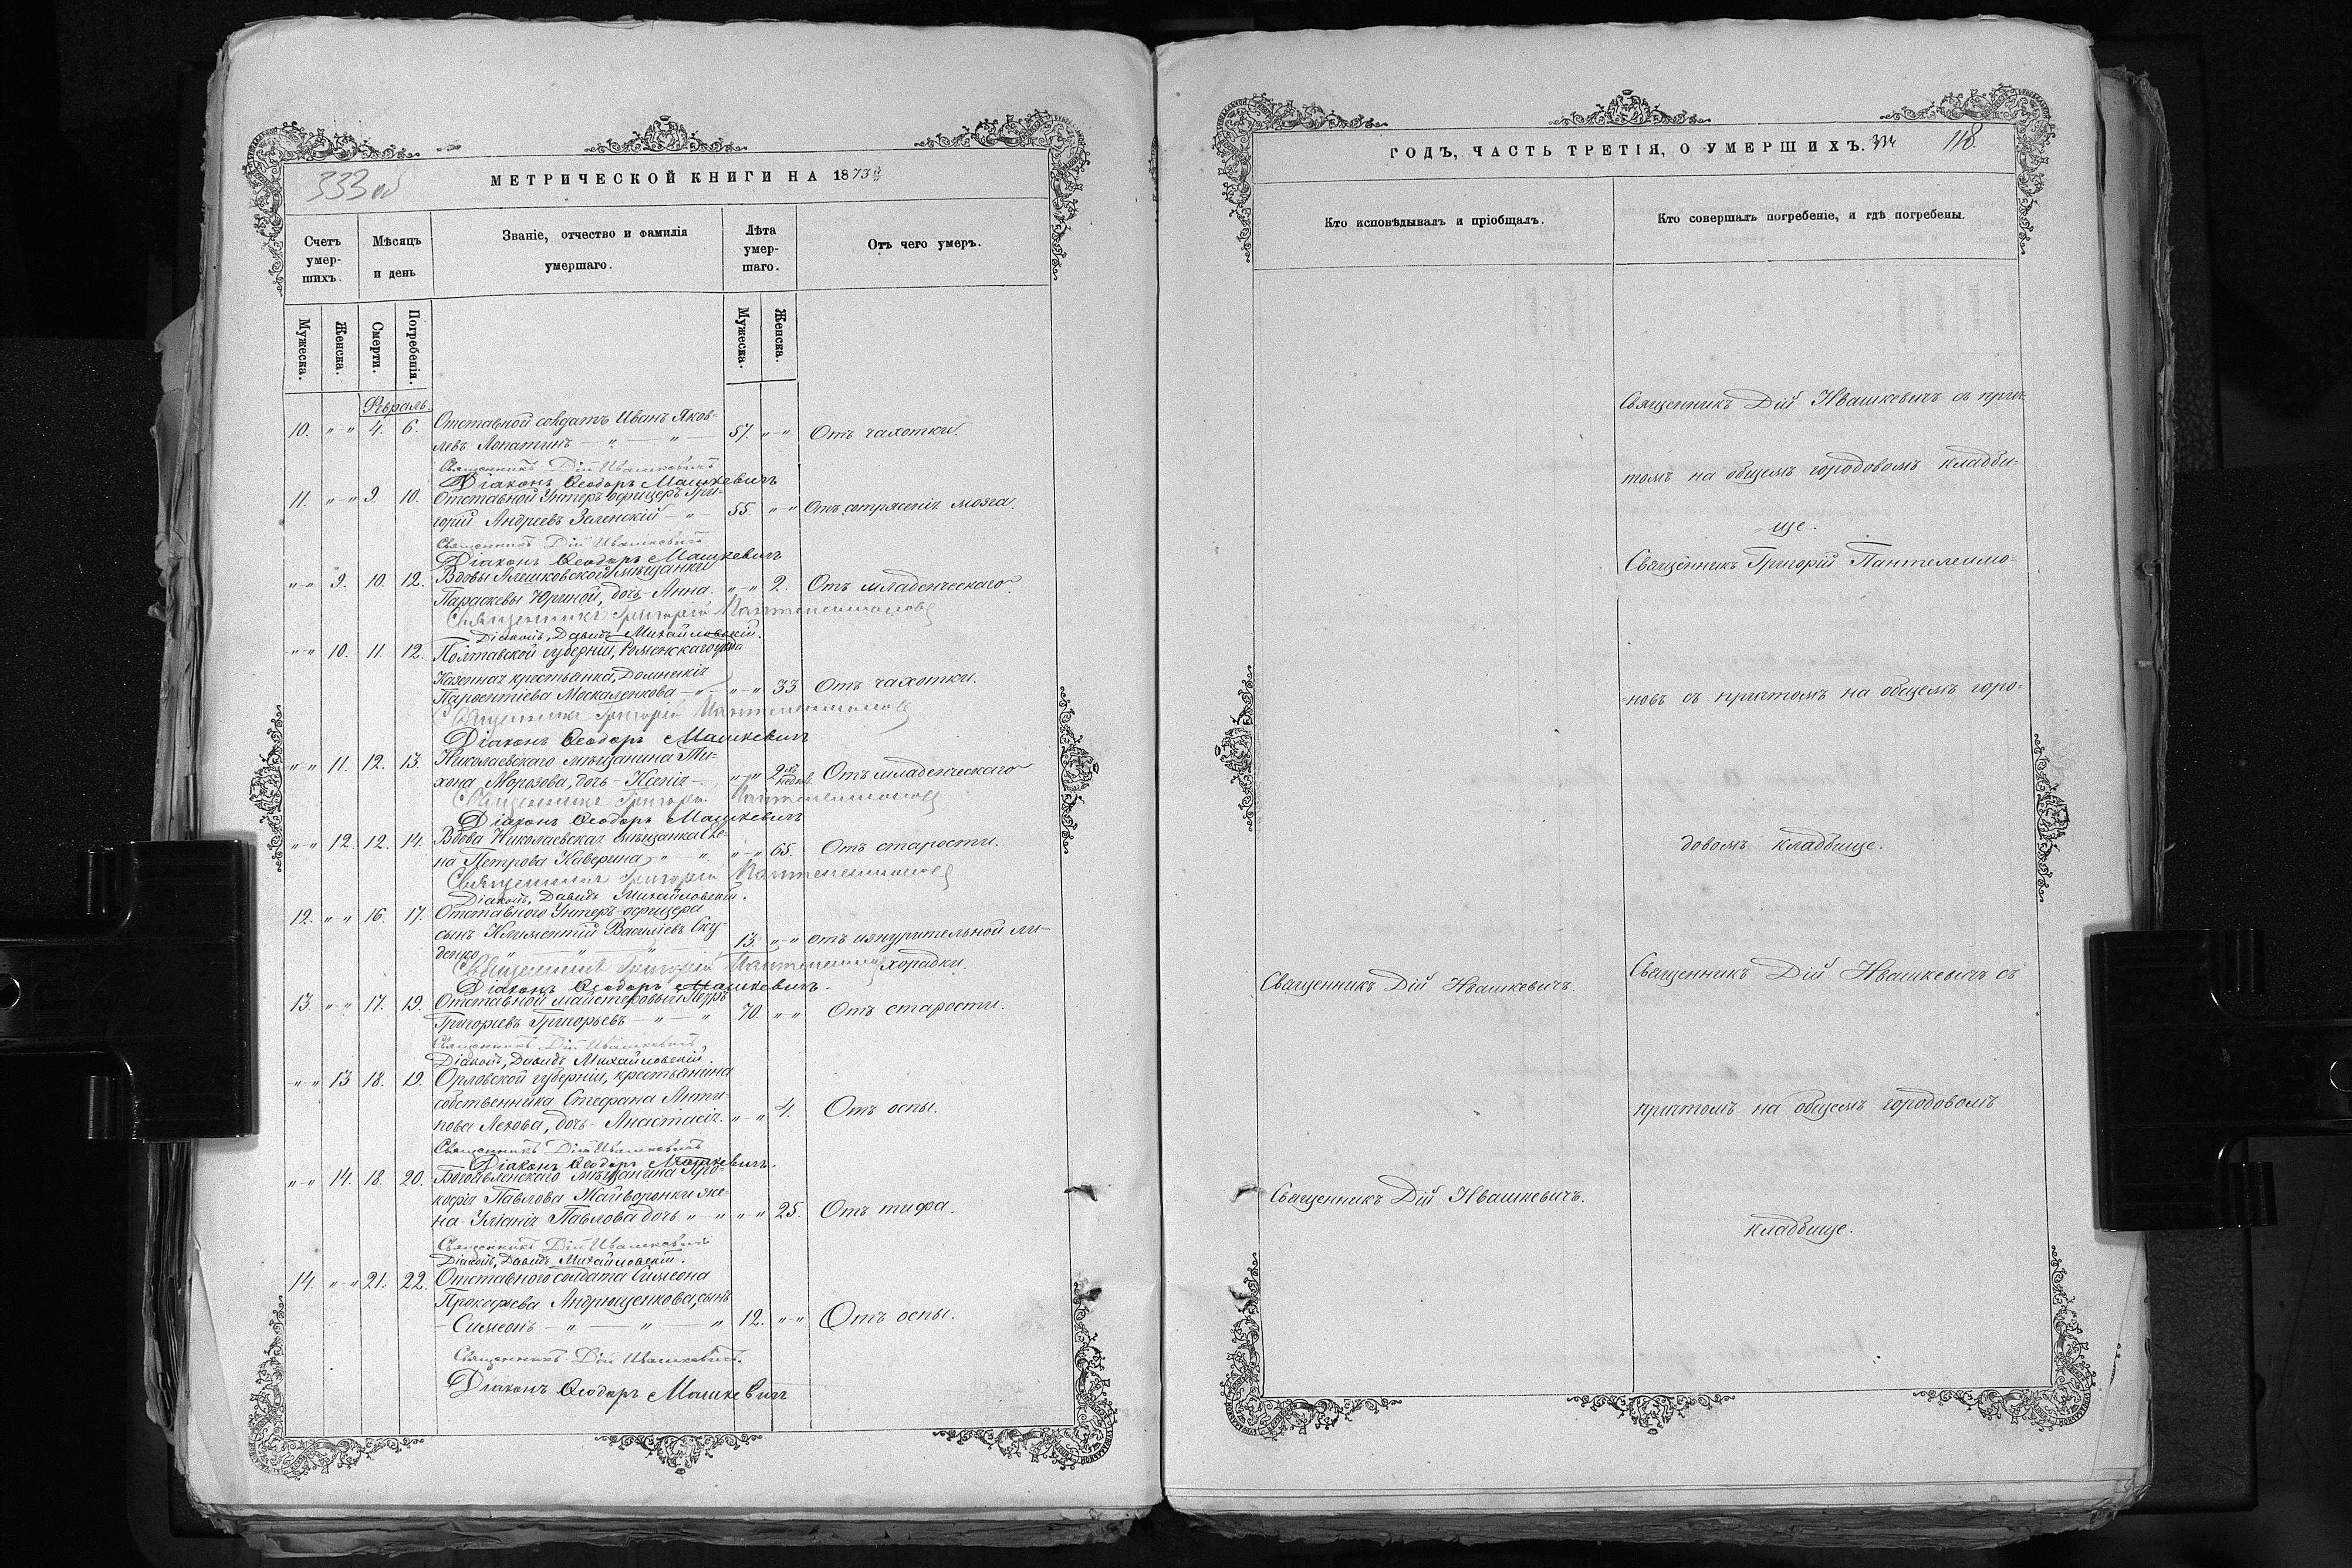 333 об
МЕТРИЧЕСКОЙ КНИГИ НА 1873й
Счетъ умер-шихъ.
Мѣсяцъ и день
Званіе, отчество и фамилія умершаго.
Лѣта умер-шаго.
Отъ чего умеръ.
Мужеска.
Женска.
Смерти.
Погребенія.
Мужеска.
Женска.
Февраль.
10. " " 4. 6. Отставной солдатъ Иванъ Яков-
левъ Лопатинъ — " — " — 57. " " Отъ чахотки.
Священникъ Дій Ивашкевичъ
Діаконъ Ѳеодоръ Машкевичъ
11. " " 9. 10. Отставной Унтеръ-офицеръ Гри-
горій Андреевъ Зеленскій — " — 55. " " Отъ сотрясенія мозга.
Священникъ Дій Ивашкевичъ
Діаконъ Ѳеодоръ Машкевичъ
" " 9. 10. 12. Вдовы Алешковской мѣщанки
Параскевы Юриной, дочь — Анна. " " 2. Отъ младенческаго.
Священникъ Григорій Пантелеимоновъ
Діаконъ, Давидъ Михайловскій.
" " 10. 11. 12. Полтавской губерніи, Роменскаго уѣзда
Казенная крестьянка, Домникія
Парѳентіева Москаленкова — " — " " 33. Отъ чахотки.
Священникъ Григорій Пантелеимоновъ
Діаконъ Ѳеодоръ Машкевичъ
" " 11. 12. 13. Николаевскаго мѣщанина Ти-
хона Морозова, дочь — Ксенія — " " 2хъ недѣл. Отъ младенческаго
Священникъ Григорій Пантелеимоновъ
Діаконъ Ѳеодоръ Машкевичъ
" " 12. 12. 14. Вдова Николаевская мѣщанка Еле-
на Петрова Каверина, " — " " " 65. Отъ старости.
Священникъ Григорій Пантелеимоновъ
Діаконъ, Давидъ Михайловскій.
12. " " 16. 17. Отставного Унтеръ-офицера
сынъ Климентій Васильевъ Ску-
денко " — " — " 13. " " Отъ изнурительной ли-
хорадки.
Священникъ Григорій Пантелеимоновъ
Діаконъ Ѳеодоръ Машкевичъ.
13. " " 17. 19. Отставной мастеровый Петръ
Григорьевъ Григорьевъ — " — " 70. " " Отъ старости.
Священникъ Дій Ивашкевичъ,
Діаконъ, Давидъ Михайловскій.
" " 13 18. 19. Орловской губерніи, крестьянина
собственника Стефана Анти-
пова Лехова, дочь — Анастасія. " " 4. Отъ оспы.
Священникъ Дій Ивашкевичъ
Діаконъ Ѳеодоръ Машкевичъ.
" " 14. 18. 20. Богоявленскаго мѣщанина Про-
кофія Павлова Жайворонки же-
на Уліанія Павлова дочь " — " " " 25. Отъ тифа.
Священникъ Дій Ивашкевичъ
Діаконъ, Давидъ Михайловскій.
14. " " 21. 22. Отставного солдата Симеона
Прокофьева Андрющенкова, сынъ
— Симеонъ — " — " — " 12. " " Отъ оспы.
Священникъ Дій Ивашкевичъ.
Діаконъ Ѳеодоръ Машкевичъ
ГОДЪ, ЧАСТЬ ТРЕТІЯ, О УМЕРШИХЪ. 334 118.
Кто исповѣдывалъ и пріобщалъ.
Кто совершалъ погребеніе, и гдѣ погребены.
Священникъ Дій Ивашкевичъ съ прич-
томъ на общемъ городовомъ кладби-
ще.
Священникъ Григорій Пантелеимо-
новъ съ причтомъ на общемъ горо-
довомъ кладбище.
Священникъ Дій Ивашкевичъ.
Священникъ Дій Ивашкевичъ съ
причтомъ на общемъ городовомъ
Священникъ Дій Ивашкевичъ.
кладбище.